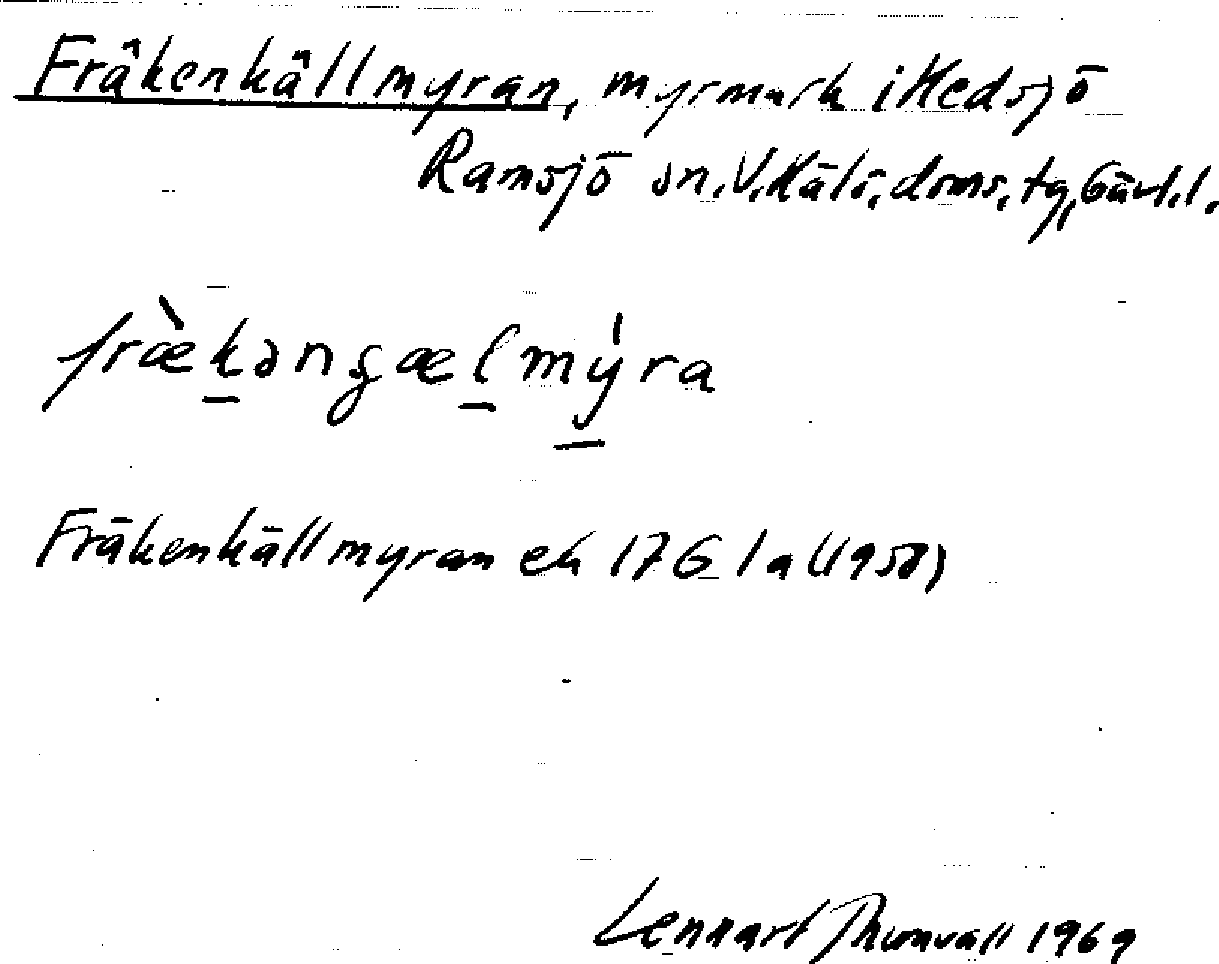 Fräkenkällmyran, myrmark i Hedsjö
Ramsjö sn, V. Häls. doms. tg, Gävl. l.
frækəngælmyra
Fräkenkällmyran ek 17G 1a (1958)
Lennart 1969